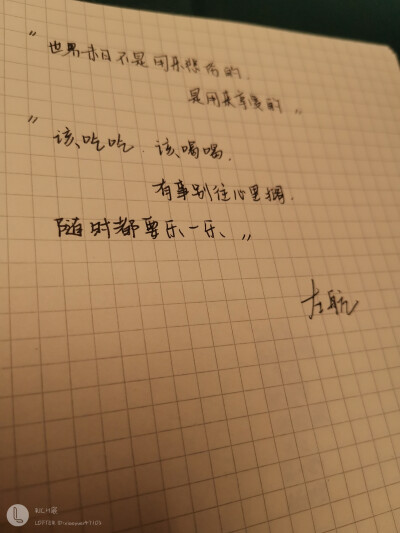 "世界末日不是用来悲伤的.
是用来享受的"
"该吃吃.该喝喝.
有事别往心里搁.
随时都要乐一乐、"
左航
LOFTER